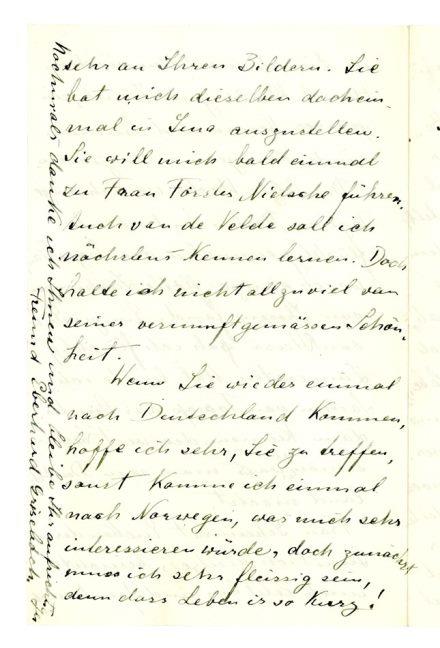 sehr an Ihren Bildern. Sie
bat mich dieselben doch ein-
mal in Jena auszustellen.
Sie will mich bald einmal
zu Frau Förster Nietsche führen.
Auch van de Velde soll ich
nächstens kennen lernen. Doch
halte ich nicht allzuviel von
seiner vernunftgemässen Schön-
heit.
Wenn Sie wieder einmal
nach Deutschland kommen,
hoffe ich sehr, Sie zu treffen,
sonst komme ich einmal
nach Norwegen, was mich sehr
interessieren würde, doch zunächst
muss ich sehr fleissig sein,
denn dass Leben is so kurz!
Nochmals danke ich Ihnen und bleibe Ihr aufrichtiger
Freund Eberhard Grisebach